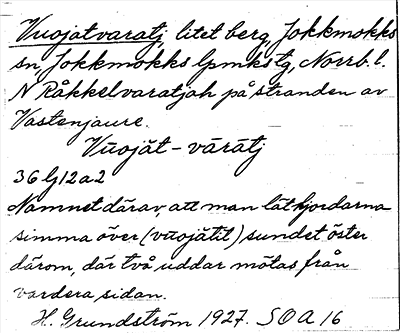 Vuojatvaratj, litet berg, Jokkmokks
sn, Jokkmokks lpmkstg, Norrb. l.
N Råkkelvaratjah på stranden av
Vastenjaure.
Vūojăt - vārātj
36 G12a2
Namnet därav, att man låt hjordarna
simma över (vuojātit) sundet öster
därom, där två uddar mötas från
vardera sidan.
H. Grundström 1927. SOA 16